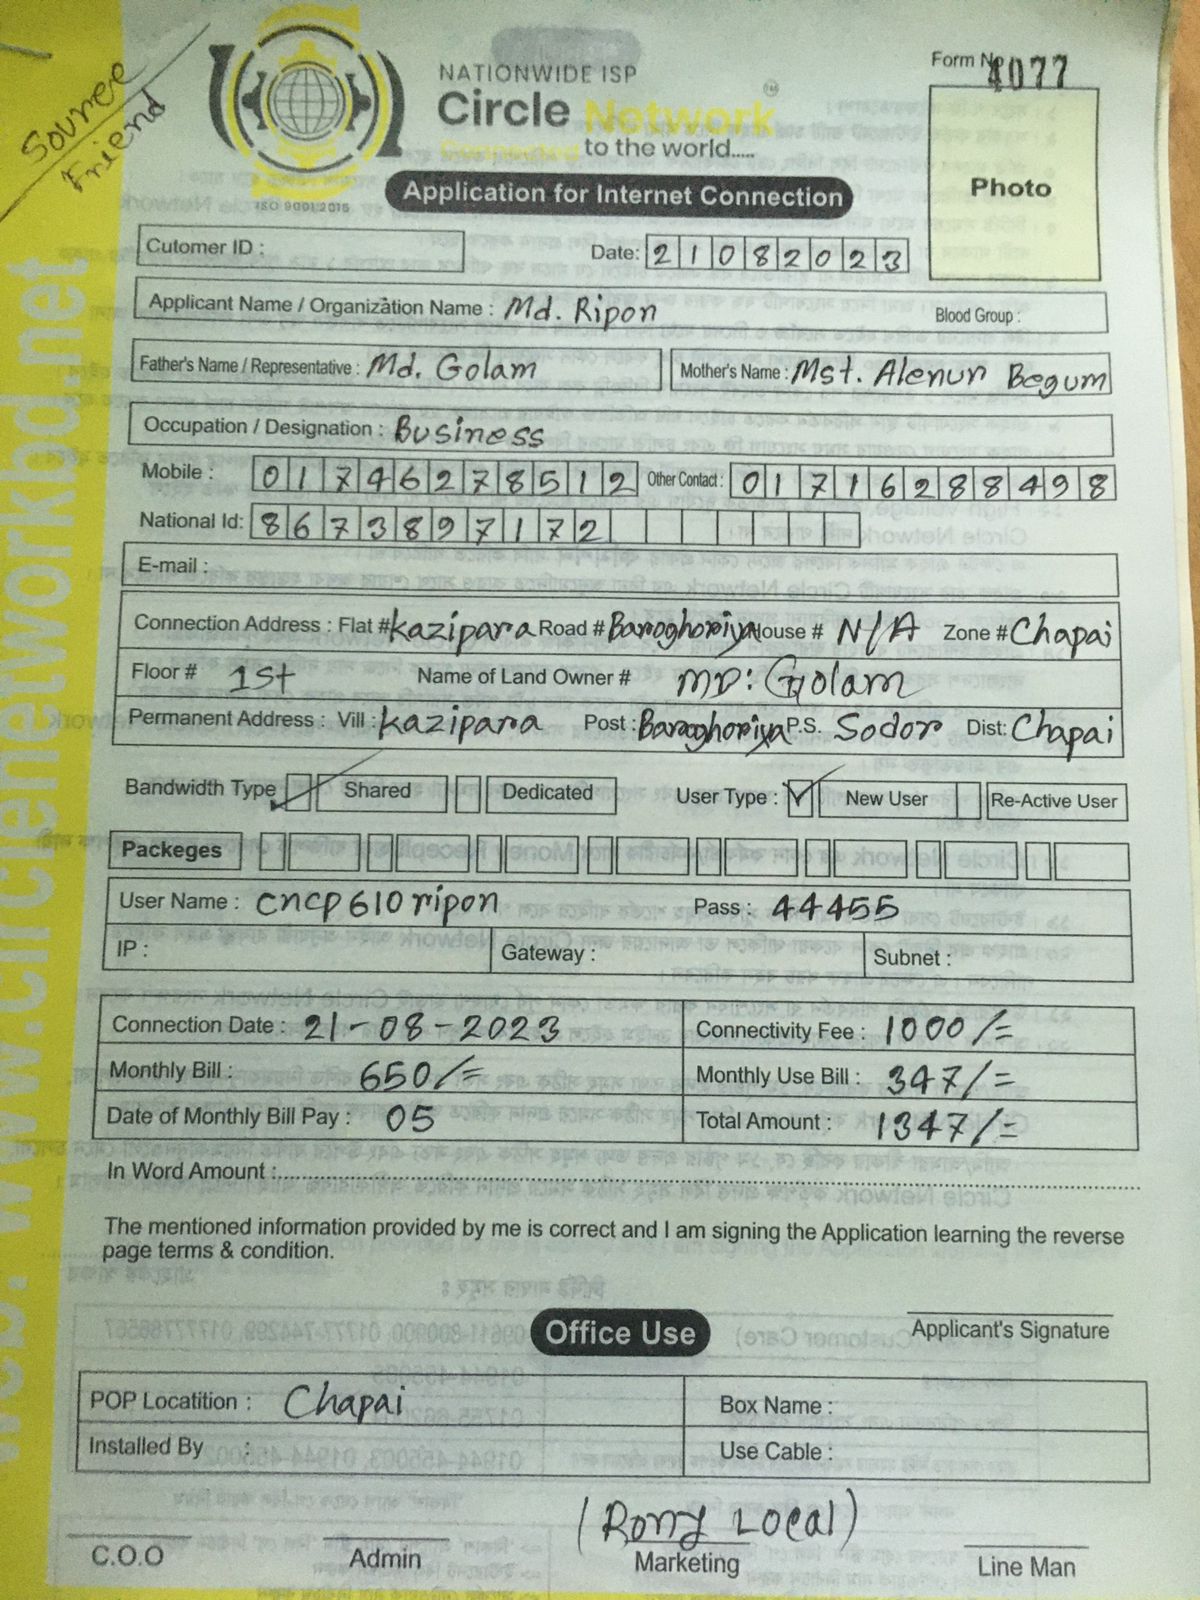 Source
Friend
NATIONWIDE ISP
Circle Network
Connected to the world.....
ISO 9001:2015
Form No 4077
Photo
Application for Internet Connection
Cutomer ID :
Date: 21082023
Applicant Name / Organization Name : Md. Ripon Blood Group :
Father's Name / Representative : Md. Golam Mother's Name : Mst. Alenur Begum
Occupation / Designation : Business
Mobile : 01746278512 Other Contact : 01716288498
National Id: 8673897172
E-mail :
Connection Address : Flat # kazipara Road # Baroghoriya House # N/A Zone # Chapai
Floor # 1st Name of Land Owner # MD: Golam
Permanent Address : Vill : kazipara Post : Baroghoriya P.S. Sodor Dist: Chapai
Bandwidth Type Shared Dedicated User Type : New User Re-Active User
Packeges
User Name : cncp610ripon Pass : 44455
IP : Gateway : Subnet :
Connection Date : 21-08-2023 Connectivity Fee : 1000/=
Monthly Bill : 650/= Monthly Use Bill : 347/=
Date of Monthly Bill Pay : 05 Total Amount : 1347/=
In Word Amount :
The mentioned information provided by me is correct and I am signing the Application learning the reverse
page terms & condition.
Applicant's Signature
Office Use
POP Locatition : Chapai Box Name :
Installed By : Use Cable :
(Rony Local)
C.O.O Admin Marketing Line Man
web: www.circlenetworkbd.net